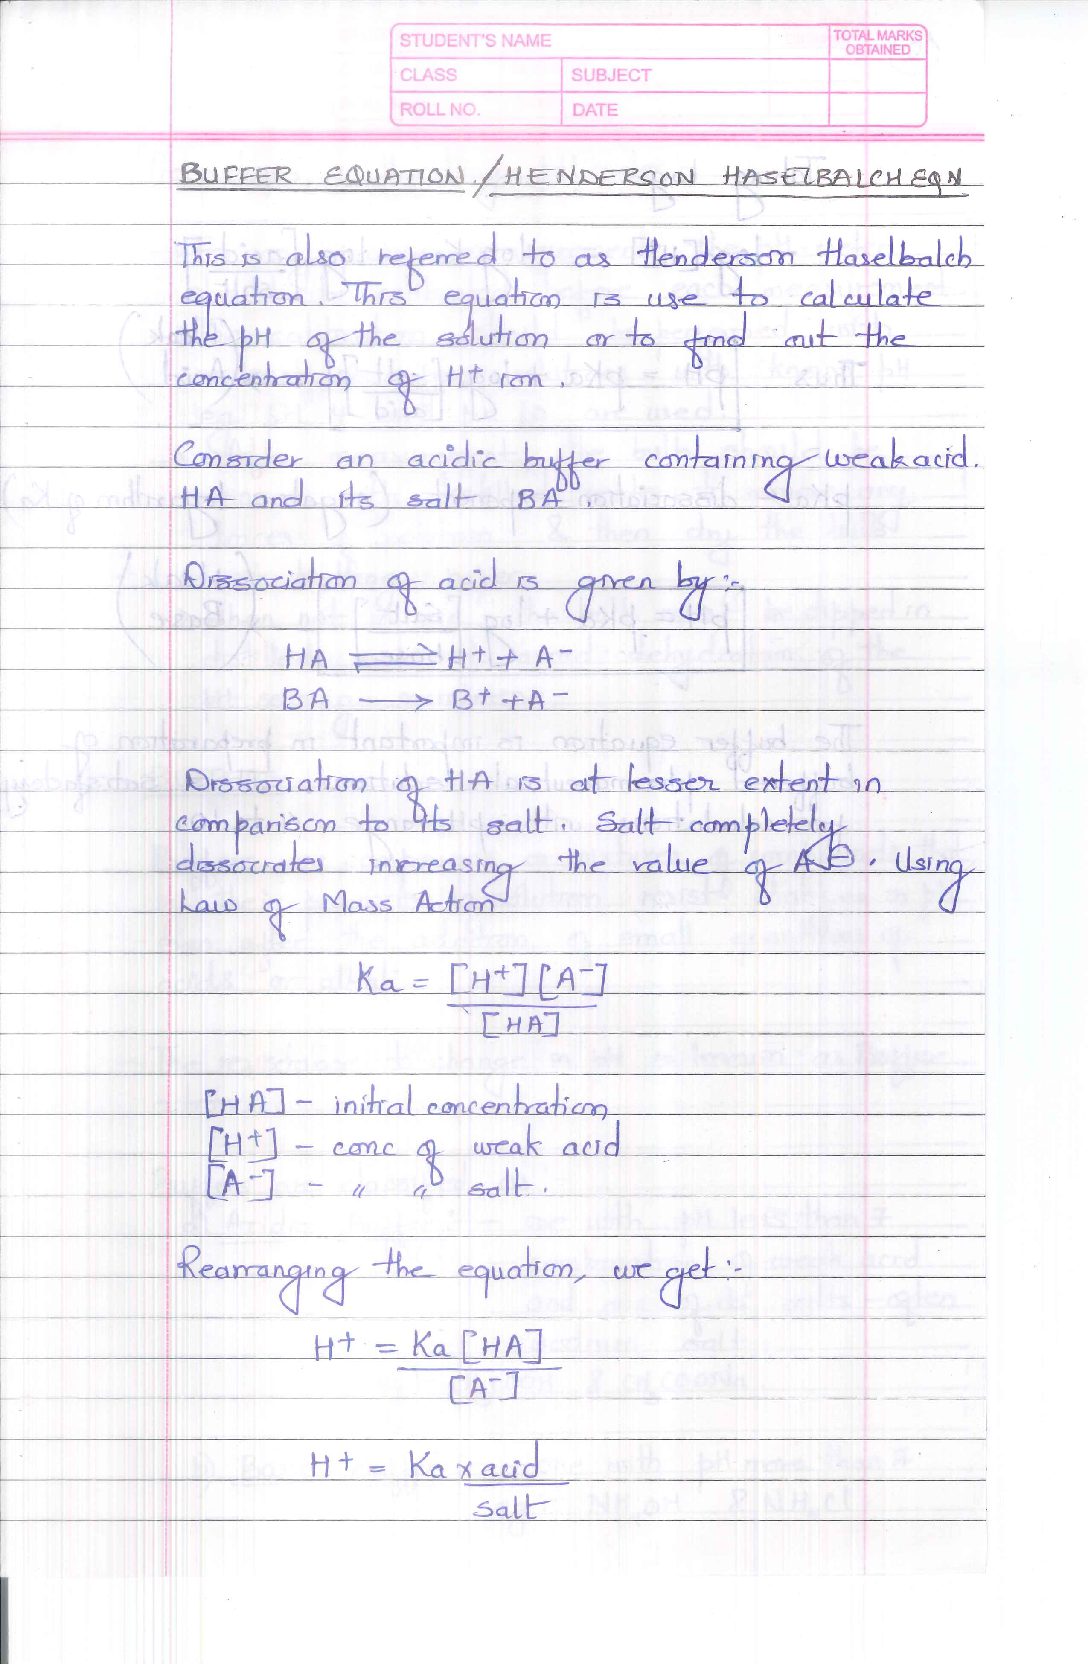 STUDENT'S NAME
TOTAL MARKS
OBTAINED
CLASS
SUBJECT
ROLL NO.
DATE
BUFFER EQUATION/HENDERSON HASELBALCH EQN
This is also referred to as Henderson Haselbalch
equation. This equation is use to calculate
the pH of the solution or to find out the
concentration of H+ ion.
Consider an acidic buffer containing weak acid.
HA and its salt BA.
Dissociation of acid is given by :-
HA ⇌ H+ + A-
BA → B+ + A-
Dissociation of HA is at lesser extent in
comparison to its salt. Salt completely
dissociates increasing the value of A⊖. Using
Law of Mass Action
Ka = [H+] [A-]
[HA]
[HA] - initial concentration
[H+] - conc of weak acid
[A-] - " " salt.
Rearranging the equation, we get :-
H+ = Ka [HA]
[A-]
H+ = Ka x acid
salt